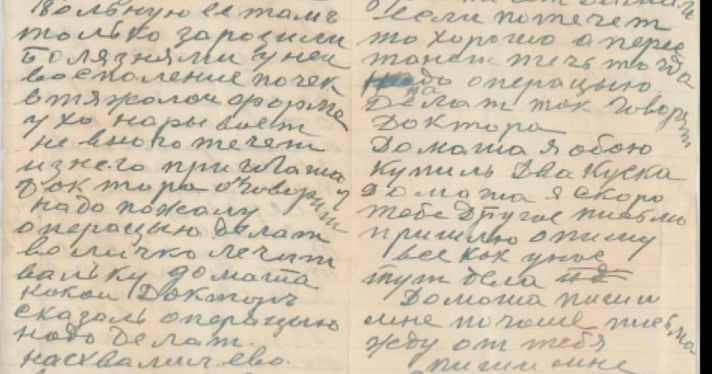 вольную ее толь
только заразили
болязнями унеи
восполение почек
втяжолой форме
ухо нарывает
не много течет
изнего приглаша
доктора оговорит
надо пожалу
операцыю делат
воличко лечит
вальку домаша
какои Докторъ
сказалъ операцыю
надо делат
насхвалил ево
если потечет
то хорошо а перес
танет течь тогда
надо операцыю
Делат так говорит
Доктора
Домаша я обою
купиль два куска
Домаша я скоро
тебе Другое письмо
пришлю опишу
все как унас
тут дела
Домаша пиши
мне почаше писма
жду от тебя
пиши мне